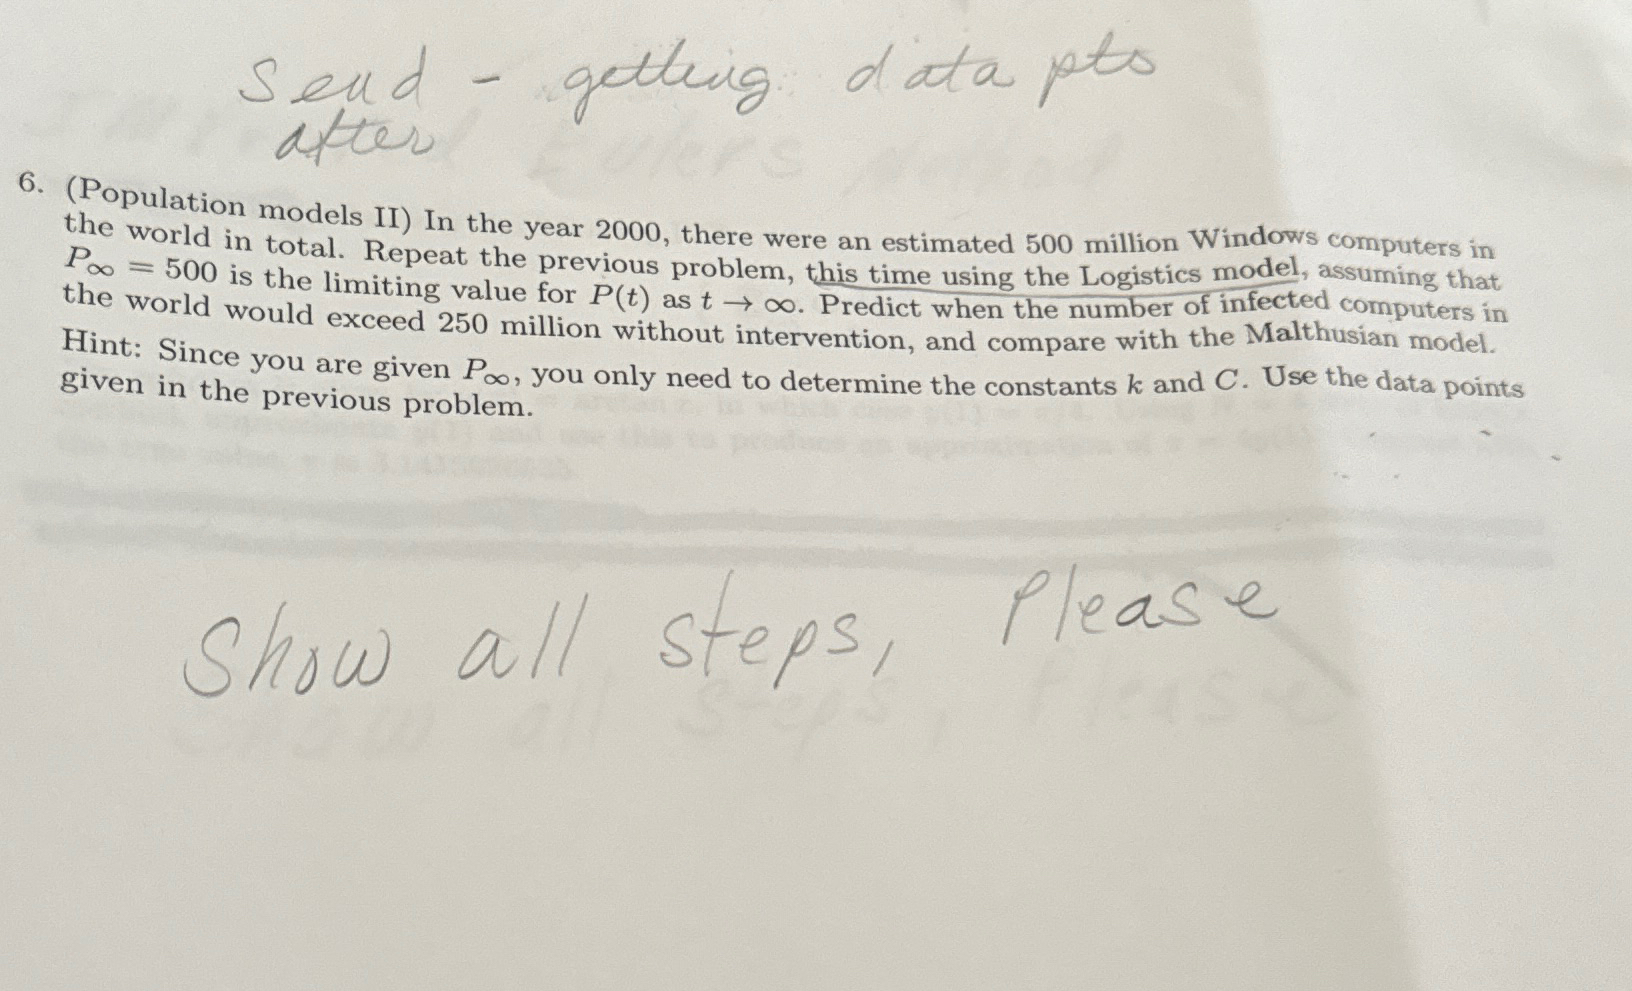 Send - getting data pts
after
6. (Population models II) In the year 2000, there were an estimated 500 million Windows computers in
the world in total. Repeat the previous problem, this time using the Logistics model, assuming that
P∞ = 500 is the limiting value for P(t) as t → ∞. Predict when the number of infected computers in
the world would exceed 250 million without intervention, and compare with the Malthusian model.
Hint: Since you are given P∞, you only need to determine the constants k and C. Use the data points
given in the previous problem.
Show all steps, Please